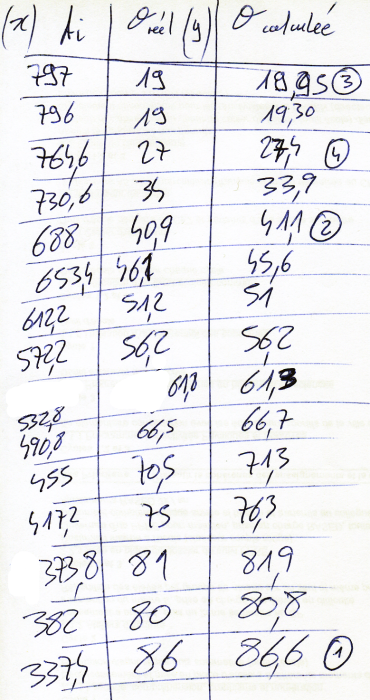 (x) Ai θ réel (y) θ calculée
797 19 18,95 ③
796 19 19,30
764,6 27 27,4 ④
730,6 34 33,9
688 40,9 41,1 ②
653,4 46,1 45,6
612,2 51,2 51
572,2 56,2 56,2
532,8 61,8 61,3
490,8 66,5 66,7
455 70,5 71,3
417,2 75 76,3
373,8 81 81,9
382 80 80,8
337,4 86 86,6 ①